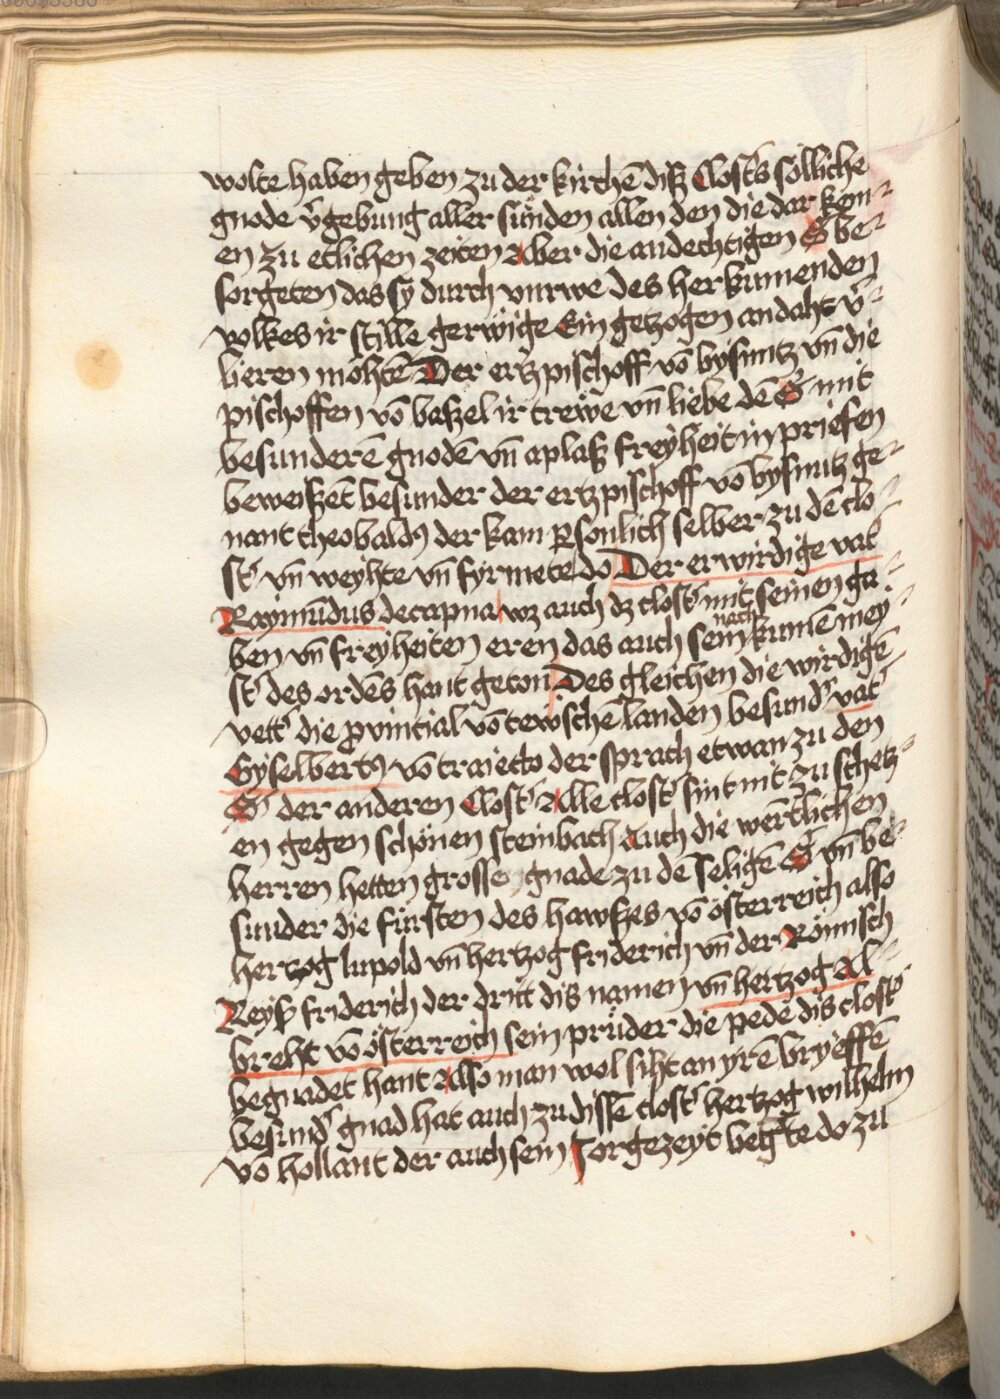 wolte haben geben zu der kirchē diß Closts sölliche
gnode v̓gebung aller sünden allen den die dar kom
en zu etlichen zeiten Aber die andechtigen S̓ be
sorgeten das sy durch vnrwe des her kumenden
volkes ir stille gerwige Ein getzogen andaht v̓
lieren möhtē Der ertzpischoff vō bysuntz vn̄ die
pischoffen vō baßel ir trewe vn̄ liebe dē S̓ mit
besunderē gnodē vn̄ aplaß freyheit in priefen
beweißet besunder der ertzpischoff vō bysuntz ge
nant theobaldꝰ der kam ꝑsonlich selber zu dē clo
st̓ vn̄ weyhte vn̄ fyrmete do Der erwirdige vat̓
Raymūdus de capua wz auch dz clost̓ mit seinen ga
ben vn̄ freyheiten eren das auch sein nach kumē mey
st̓ des ordēs hant geton Des gleichen die wirdigē
vett̓ die ꝓvincial vō tewschē landen besund̓ vat̓
Gyselbertꝰ vō traiecto der sprach etwan zu den
S̓ der anderen Clost̓ Alle clost̓ sint nit zu schetz
en gegen schönen steinbach Auch die wertlichen
herren hetten grosse gnade zu dē seligē S̓ vn̄ be
sunder die fürsten des hawßes vō österreich also
hertzog lupold vn̄ hertzog friderich vn̄ der Römisch
Keyß friderich der dritt dis namen vn̄ hertzog Al
breht vō österreich sein prüder die pede dis clost̓
begnadet hant Also man wol siht an yrē bryeffē
besund̓ gnad hat auch zu dissē clost̓ hertzog wilhelm
vō hollant der auch sein Jorgezeyt begerte do zu